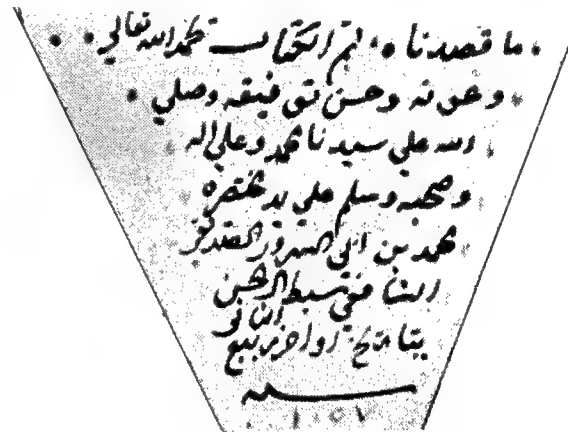 ما قصدنا تم الكتاب بحمد الله تعالى
وعونه وحسن توفيقه وصلى
الله على سيدنا محمد وعلى اله
وصحبه وسلم على يد مختصره
محمد بن ابى السرور الصديقى
الشافعى سبط ال الحسن
بتاريخ اواخر ربيع الثانى
سنه
١٠٥٧